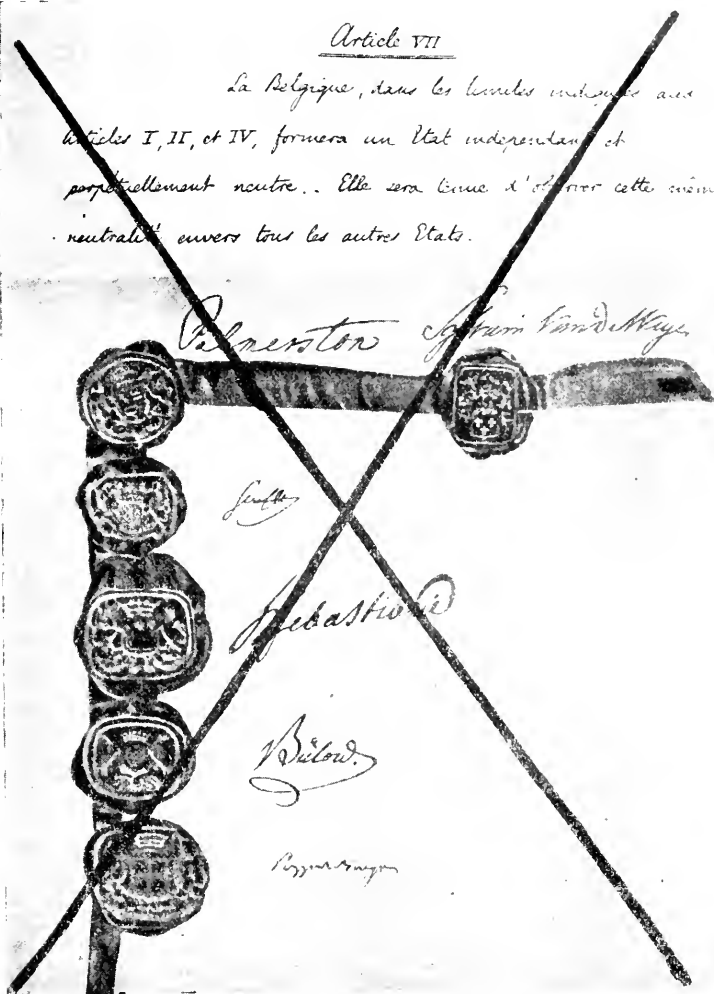 Article VII
La Belgique, dans les limites indiquées aux
Articles I, II, et IV, formera un Etat indépendant et
perpétuellement neutre.. Elle sera tenue d'observer cette même
neutralité envers tous les autres Etats.
Palmerston Sylvain Van de Weyer
Senfft
Sebastiani
Bülow.
Pozzo di Borgo